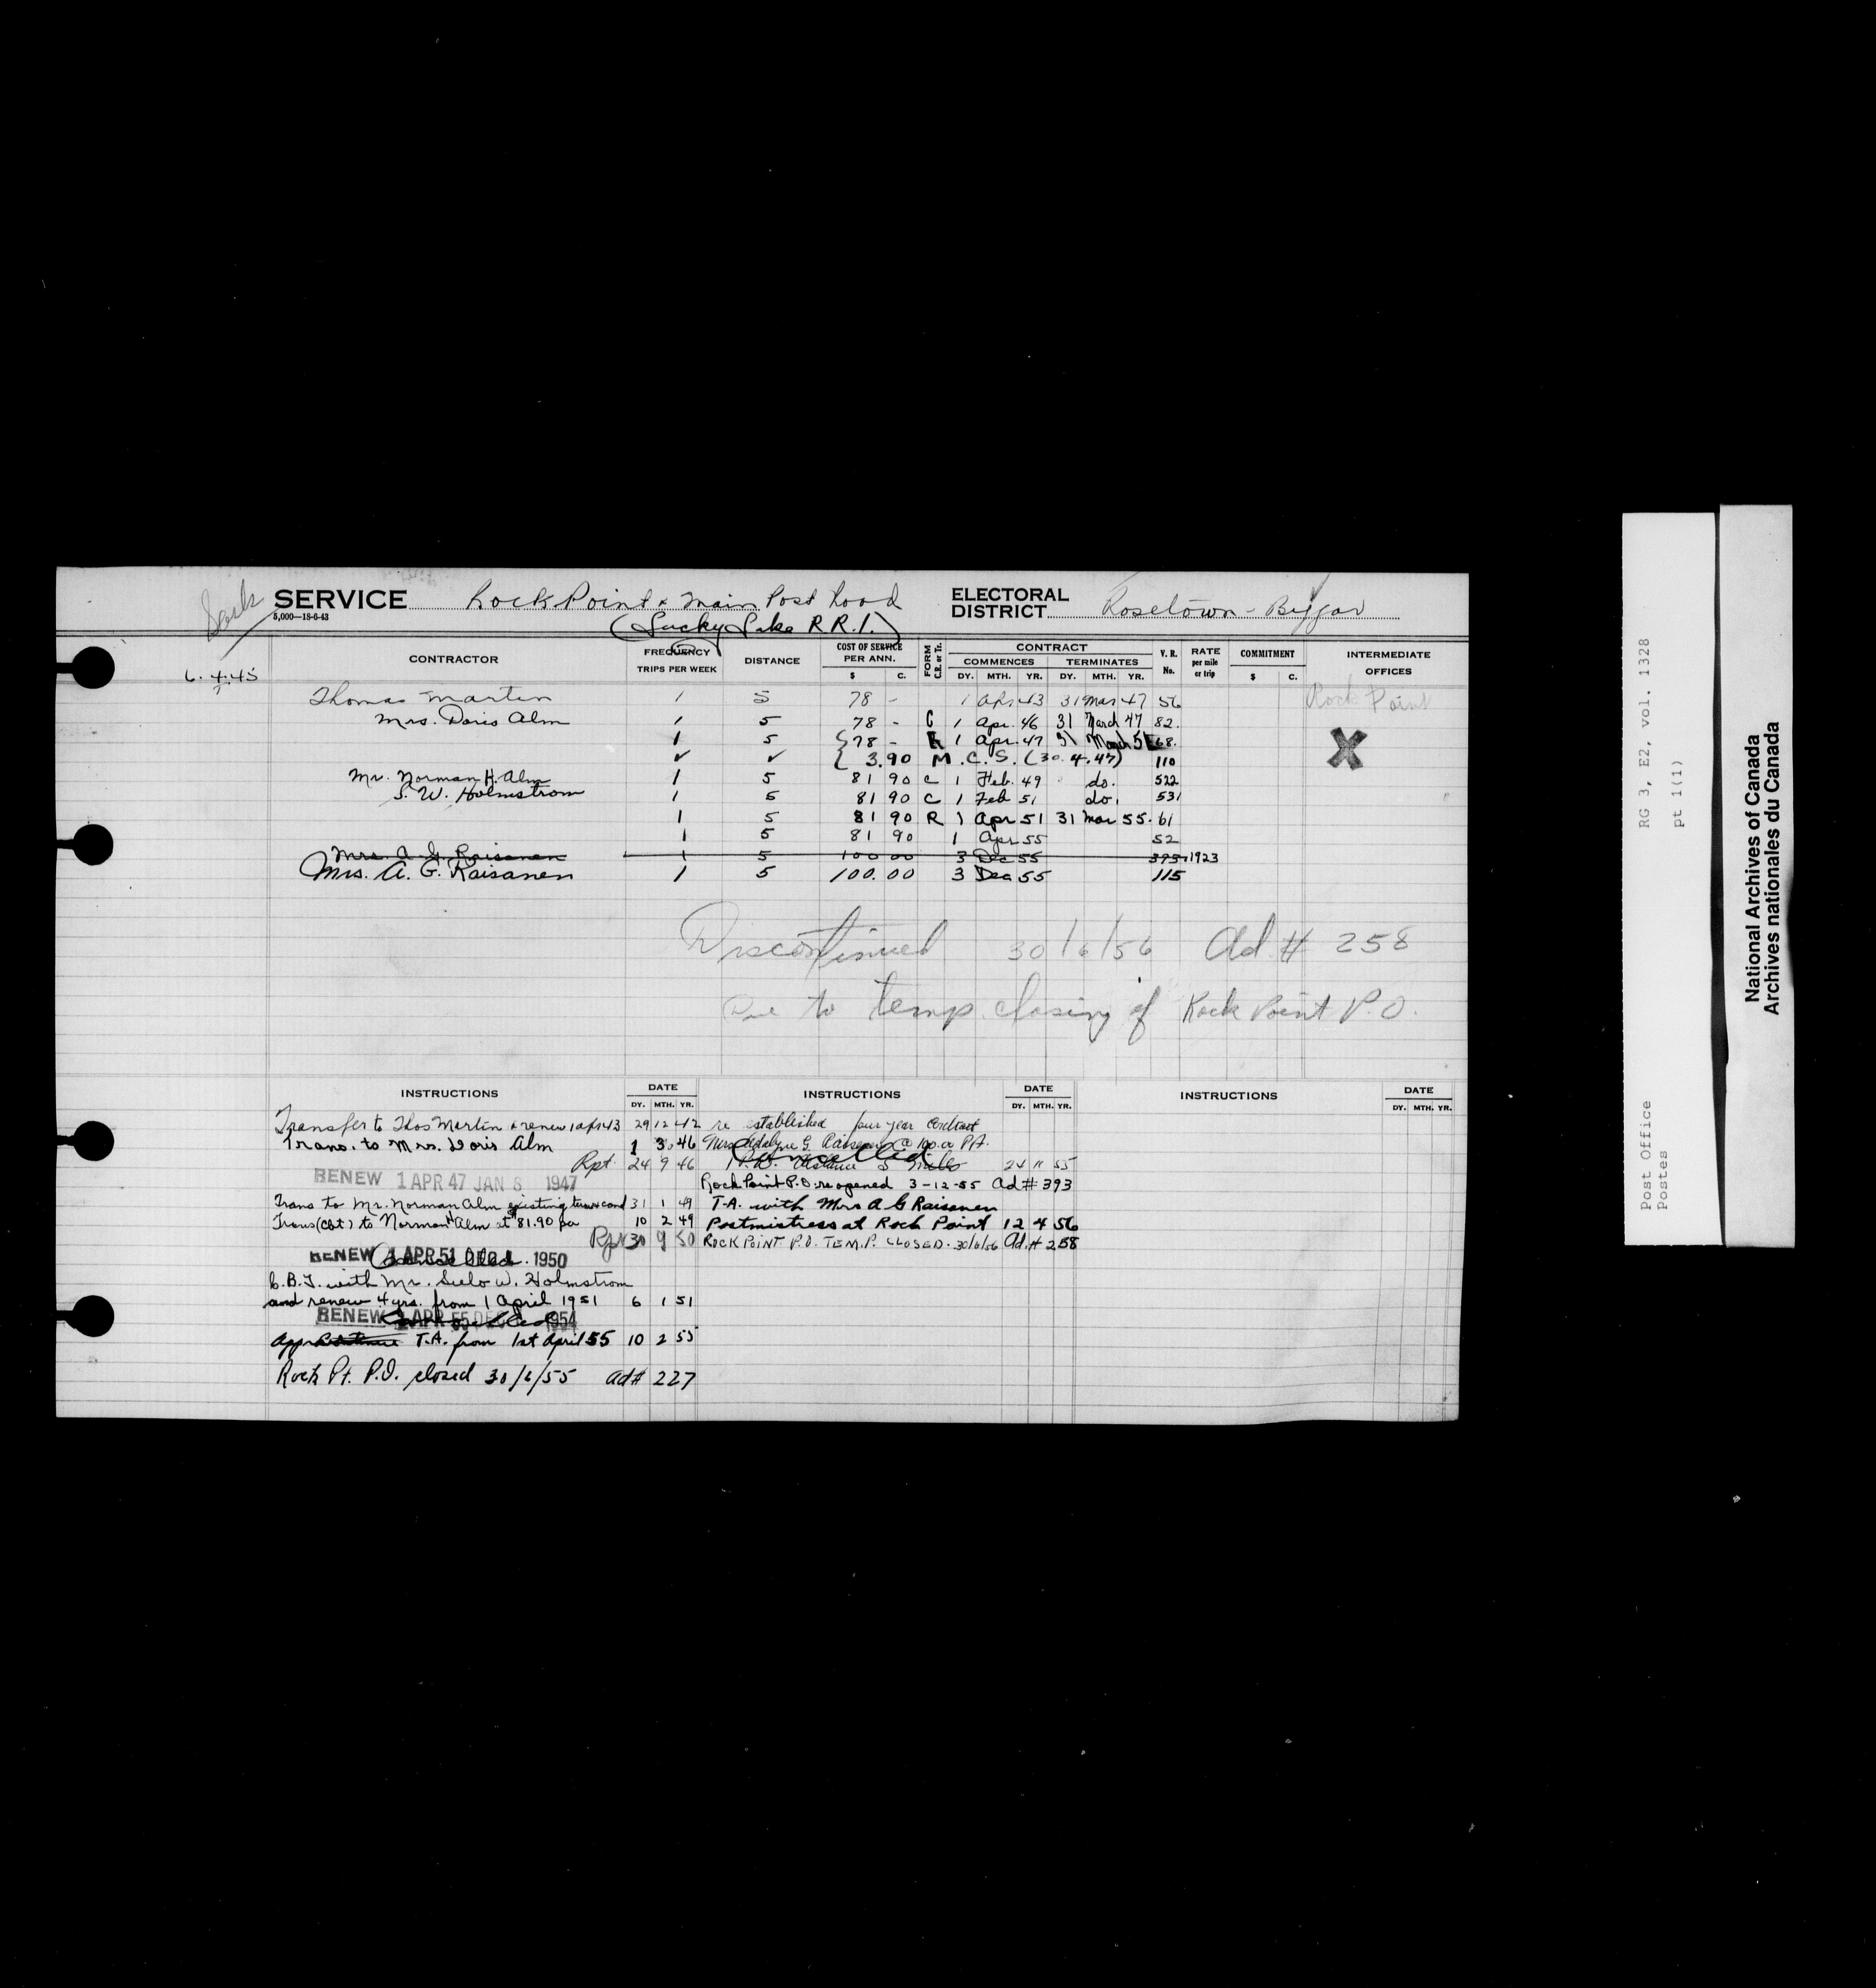 Sask
SERVICE Rock Point & Main Post Road ELECTORAL DISTRICT Rosetown - Biggar
5,000—18-6-43
(Lucky Lake R.R.1.)
CONTRACTOR FREQUENCY TRIPS PER WEEK DISTANCE COST OF SERVICE PER ANN. $ C. FORM C.R. or Tr. CONTRACT COMMENCES DY. MTH. YR. TERMINATES DY. MTH. YR. V. R. No. RATE per mile or trip COMMITMENT $ C. INTERMEDIATE OFFICES
6.4.45
Thomas Martin 1 5 78 - 1 Apr 43 31 Mar 47 56 Rock Point
Mrs. Doris Alm 1 5 78 - C 1 Apr. 46 31 March 47 82.
1 5 {78 - R 1 Apr. 47 31 March 51 68. X
✓ ✓ { 3.90 M.C.S. (30.4.47) 110
Mr. Norman H. Alm 1 5 81 90 C 1 Feb. 49 do. 522
S. W. Holmstrom 1 5 81 90 C 1 Feb 51 do. 531
1 5 81 90 R 1 Apr 51 31 Mar 55. 61
1 5 81 90 1 Apr 55 52
Mrs. A. G. Raisanen 1 5 100 00 3 Dec 55 393-1923
Mrs. A. G. Raisanen 1 5 100.00 3 Dec 55 115
Discontinued 30/6/56 Ad # 258
Due to temp. closing of Rock Point P.O.
INSTRUCTIONS DATE DY. MTH. YR. INSTRUCTIONS DATE DY. MTH. YR. INSTRUCTIONS DATE DY. MTH. YR.
Transfer to Thos Martin & renew 1 Apr 43 29 12 42
Trans. to Mrs. Doris Alm 1 3 46
Rpt. 24 9 46
RENEW 1 APR 47 JAN 8 1947
Trans to Mr. Norman Alm existing terms cond 31 1 49
Trans (Cbt) to Norman H Alm at $81.90 pa 10 2 49
Rpt 30 9 50
RENEW 1 APR 51 DEC 1950
Cancelled
C.B.T. with Mr. Sulo W. Holmstrom
and renew 4 yrs. from 1 April 1951 6 1 51
RENEW 1 APR 55 DEC 1954
Cancelled
App T.A. from 1st April 55 10 2 55
Rock Pt. P.O. closed 30/6/55 Ad# 227
re established four year contract
Mrs Adalyne G. Raisanen @ 100.00 P.A.
Cancelled
1 P.W. distance 5 miles 24 11 55
Rock Point P.O. reopened 3-12-55 Ad # 393
T.A. with Mrs A G Raisanen
Postmistress at Rock Point 12 4 56
ROCK POINT P.O. TEMP. CLOSED. 30/6/56 Ad. # 258
RG 3, E2, vol. 1328
pt 1(1)
Post Office
Postes
National Archives of Canada
Archives nationales du Canada